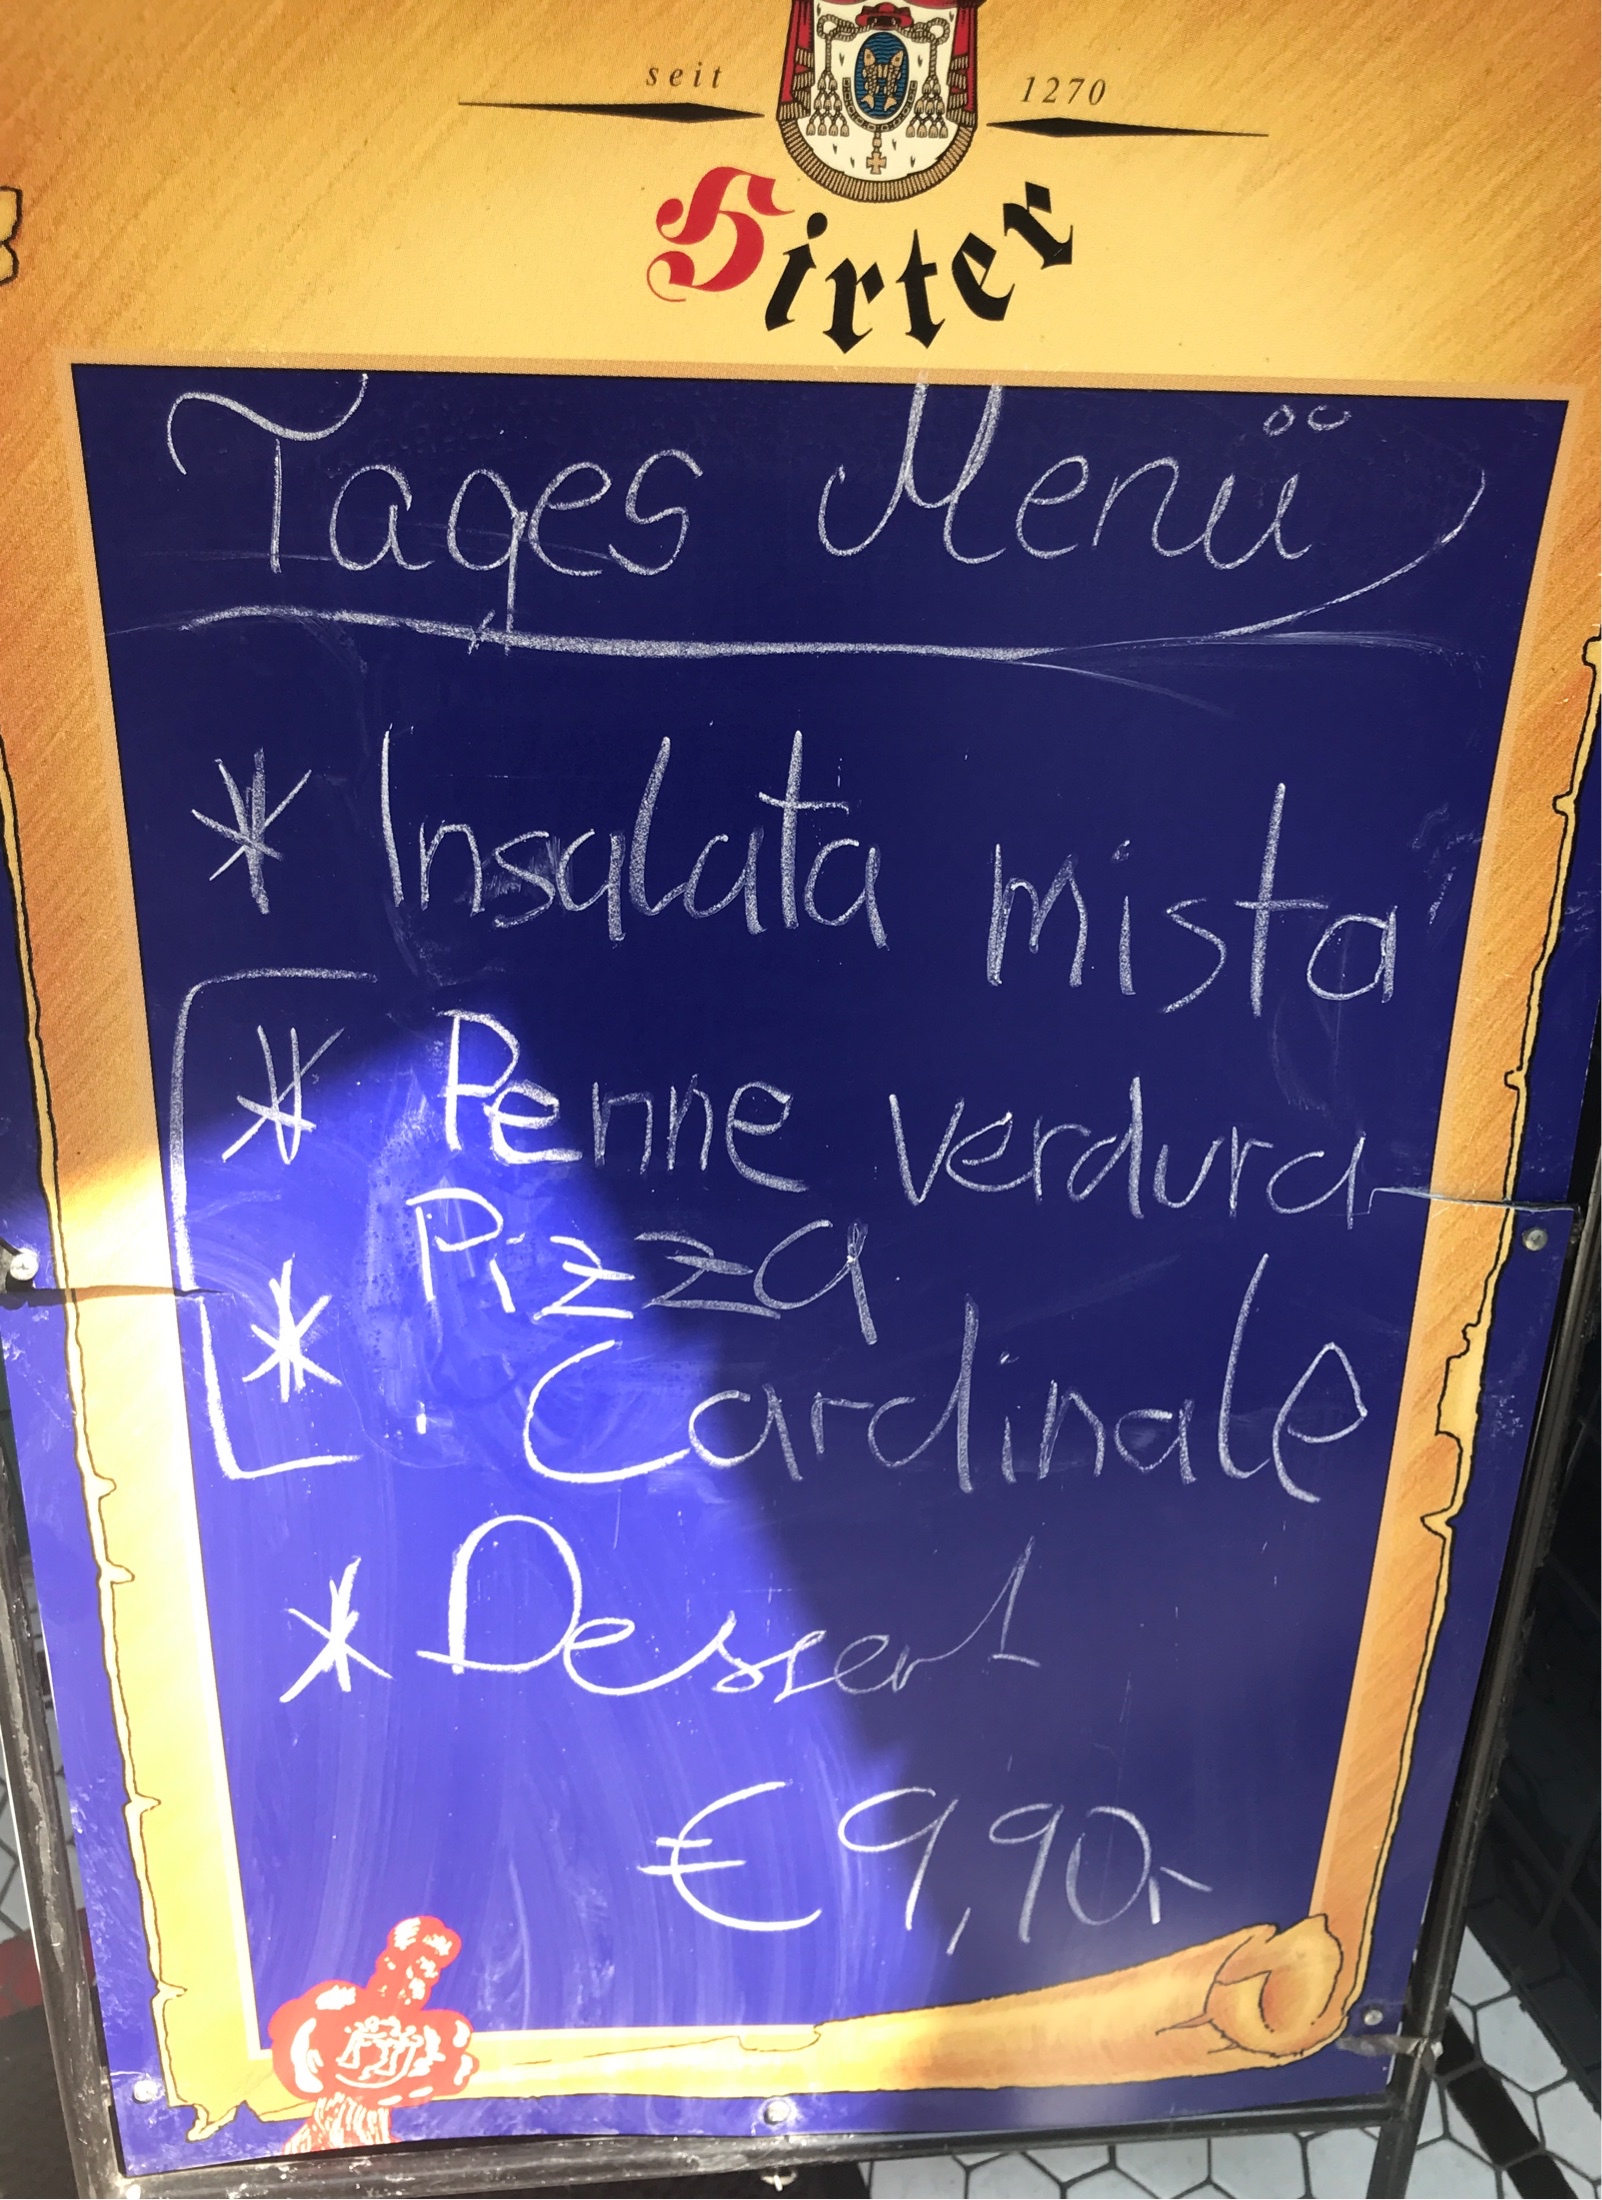 seit 1270
Hirter
Tages Menü
* Insalata mista
* Penne verdura
Pizza
* Cardinale
* Dessert
€ 9,90,-